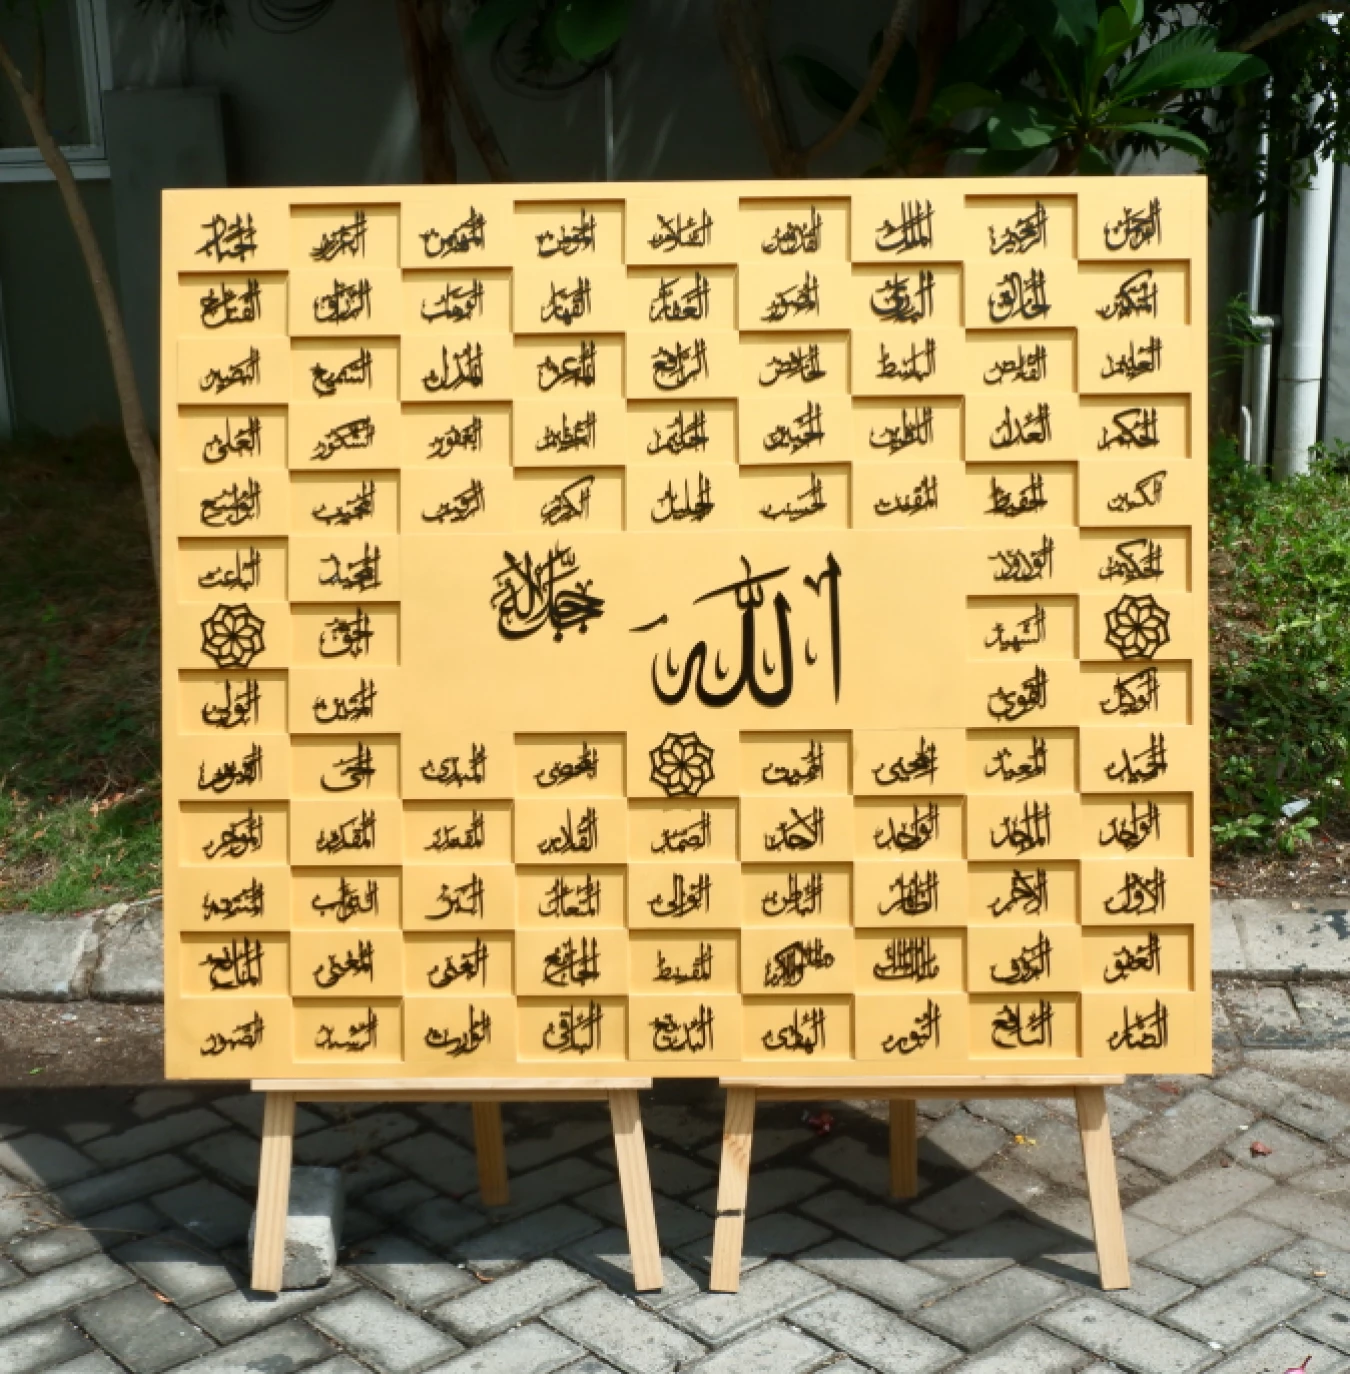 الرحمن الرحيم الملك القدوس السلام المؤمن المهيمن العزيز الجبار
المتكبر الخالق البارئ المصور الغفار القهار الوهاب الرزاق الفتاح
العليم القابض الباسط الخافض الرافع المعز المذل السميع البصير
الحكم العدل اللطيف الخبير الحليم العظيم الغفور الشكور العلي
الكبير الحفيظ المقيت الحسيب الجليل الكريم الرقيب المجيب الواسع
الحكيم الودود المجيد الباعث
الله جل جلاله
الشهيد الحق
الوكيل القوي المتين الولي
الحميد المعيد المحيي المميت المحصي المبدئ الحي القيوم
الواجد الماجد الواحد الاحد الصمد القادر المقتدر المقدم المؤخر
الاول الآخر الظاهر الباطن الوالي المتعال البر التواب المنتقم
العفو الرؤوف مالك الملك ذو الجلال والاكرام المقسط الجامع الغني المغني المانع
الضار النافع النور الهادي البديع الباقي الوارث الرشيد الصبور